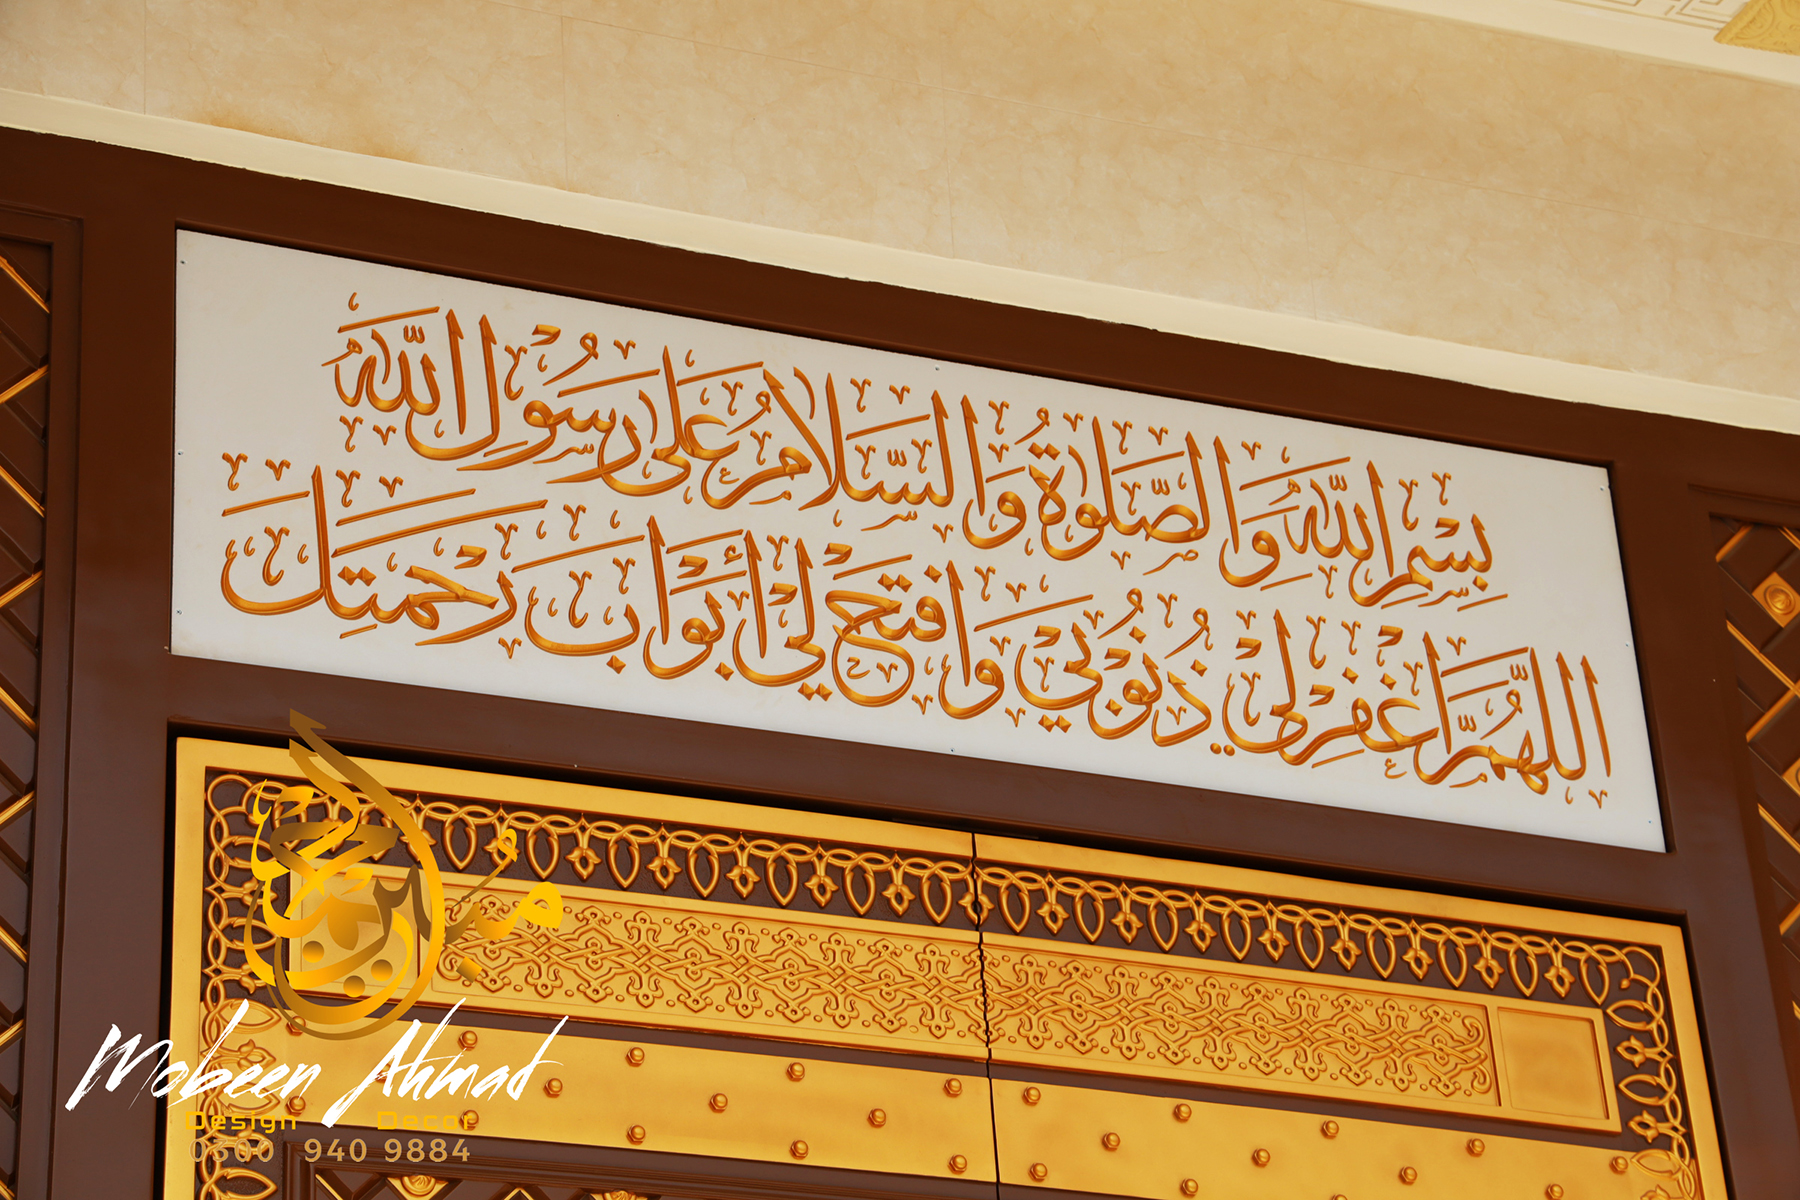 بِسْمِ اللّٰهِ وَالصَّلٰوةُ وَالسَّلَامُ عَلٰی رَسُوْلِ اللّٰهِ
اَللّٰهُمَّ اغْفِرْ لِيْ ذُنُوْبِيْ وَافْتَحْ لِيْ أَبْوَابَ رَحْمَتِكَ
مُبین احمد
Mobeen Ahmad
Design Decor
0300 940 9884